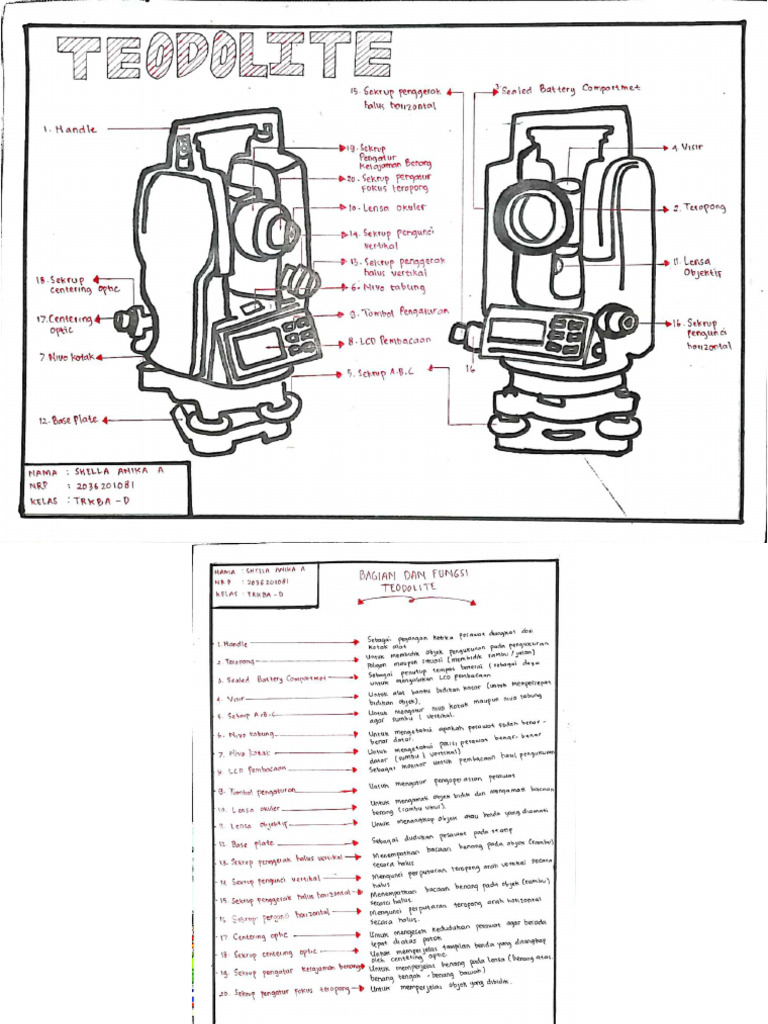 TEODOLITE
1. Handle
19. Sekrup
Pengatur
Ketajaman Benang
20. Sekrup pengatur
Fokus teropong
10. Lensa okuler
14. Sekrup pengunci
vertikal
13. Sekrup penggerak
halus vertikal
6. Nivo tabung
9. Tombol Pengaturan
8. LCD Pembacaan
5. Sekrup A.B.C
18. Sekrup
centering optic
17. Centering
optic
7 Nivo kotak
12. Base Plate
15. Sekrup penggerak
halus horizontal
3. Sealed Battery Compartmet
4. Visir
2. Teropong
11. Lensa
Objektif
16. Sekrup
pengunci
horizontal
16
NAMA : SHELLA ANIKA A
NRP : 2036201081
KELAS : TRKBA - D
NAMA : SHELLA ANIKA A
NRP : 2036201081
KELAS : TRKBA - D
BAGIAN DAN FUNGSI
TEODOLITE
1. Handle
Sebagai pegangan ketika pesawat diangkat dari
kotak alat
2. Teropong
Untuk membidik objek pengukuran pada pengukuran
Poligon maupun situasi (membidik rambu / jalon)
3. Sealed Battery Compartmet
Sebagai penutup tempat baterai (sebagai daya
untuk menyalakan LCD pembacaan
4. Visir
Untuk alat bantu bidikan kasar (untuk mempercepat
bidikan objek).
5. Sekrup A.B.C
Untuk mengatur nivo kotak maupun nivo tabung
agar sumbu I vertikal.
6. Nivo tabung
Untuk mengetahui apakah pesawat sudah benar-
benar datar.
7. Nivo Kotak
Untuk mengetahui posisi pesawat benar-benar
datar (sumbu I vertikal)
8. LCD Pembacaan
Sebagai monitor untuk pembacaan hasil pengukuran
9. Tombol pengaturan
Untuk mengatur pengoperasian pesawat
10. Lensa okuler
Untuk mengamati objek bidik dan mengamati bacaan
benang (rambu ukur).
11. Lensa objektif
Untuk menangkap objek atau benda yang diamati
12. Base plate
Sebagai dudukan pesawat pada statip
13. Sekrup penggerak halus vertikal
Menempatkan bacaan benang pada objek (rambu)
secara halus
14. Sekrup pengunci vertikal
Mengunci perputaran teropong arah vertikal secara
halus
15. Sekrup penggerak halus horizontal
Menempatkan bacaan benang pada objek (rambu)
secara halus.
16. Sekrup pengunci horizontal
Mengunci perputaran teropong arah horizontal
secara halus.
17. Centering optic
Untuk mengecek kedudukan pesawat agar berada
tepat diatas patok
18. Sekrup centering optic
Untuk memperjelas tampilan benda yang ditangkap
oleh centering optic
19. Sekrup pengatur ketajaman benang
Untuk memperjelas benang pada lensa (benang atas,
benang tengah, benang bawah)
20. Sekrup pengatur fokus teropong
Untuk memperjelas objek yang dibidik.